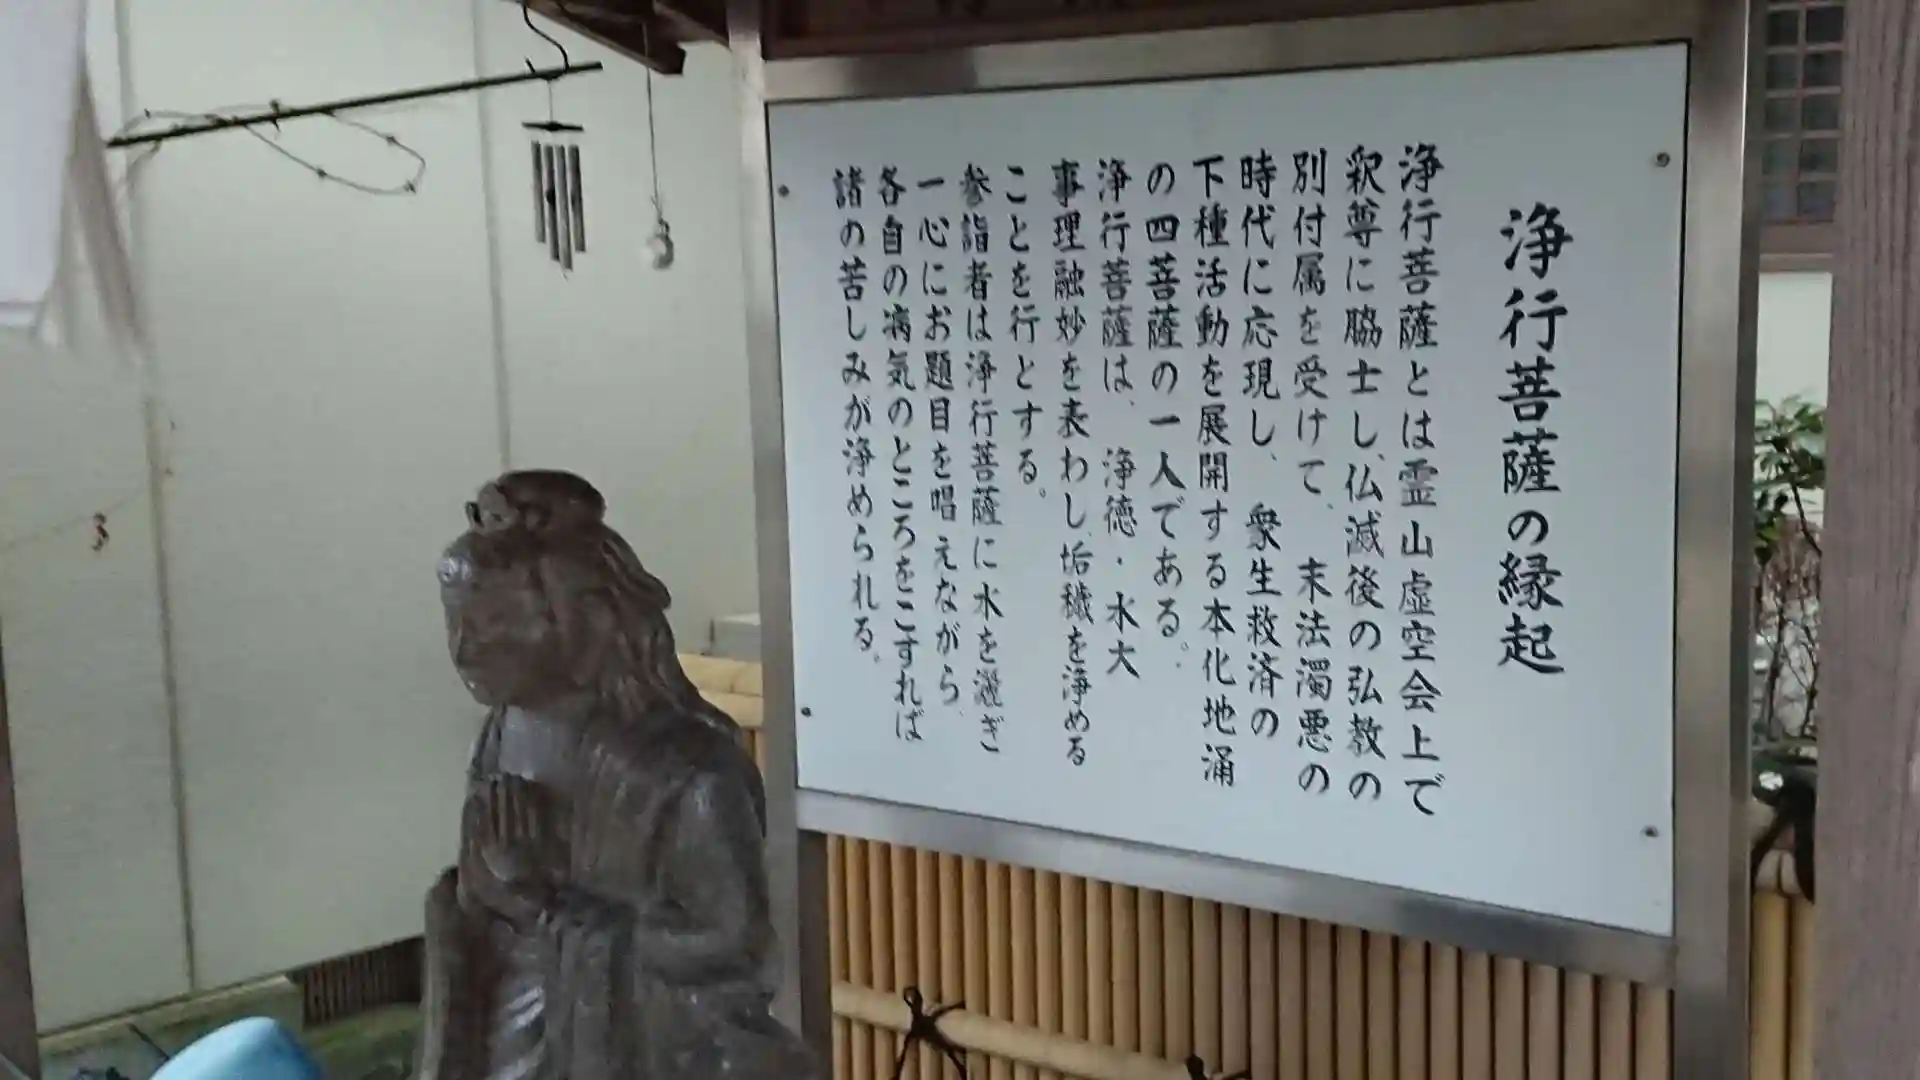 浄行菩薩の縁起
浄行菩薩とは霊山虚空会上で
釈尊に脇士し、仏滅後の弘教の
別付属を受けて、末法濁悪の
時代に応現し、衆生救済の
下種活動を展開する本化地涌
の四菩薩の一人である。
浄行菩薩は、浄徳・水大
事理融妙を表わし、垢穢を浄める
ことを行とする。
参詣者は浄行菩薩に水を灑ぎ
一心にお題目を唱えながら、
各自の病気のところをこすれば
諸の苦しみが浄められる。